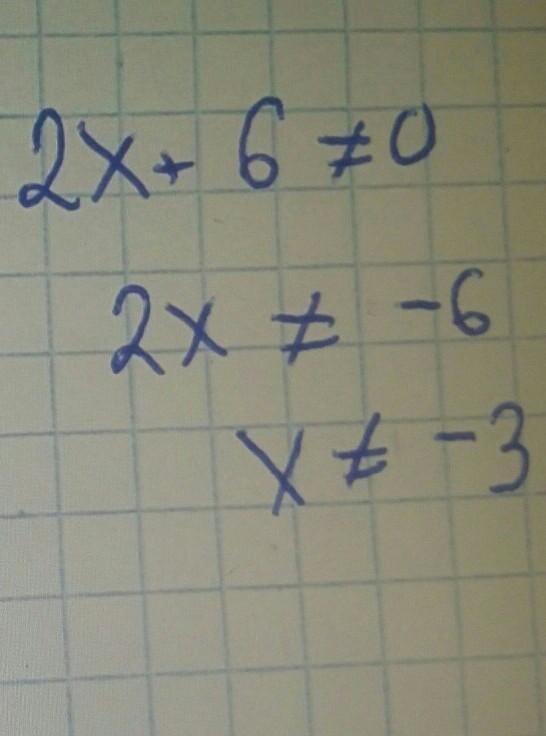 2x + 6 ≠ 0
2x ≠ -6
x ≠ -3